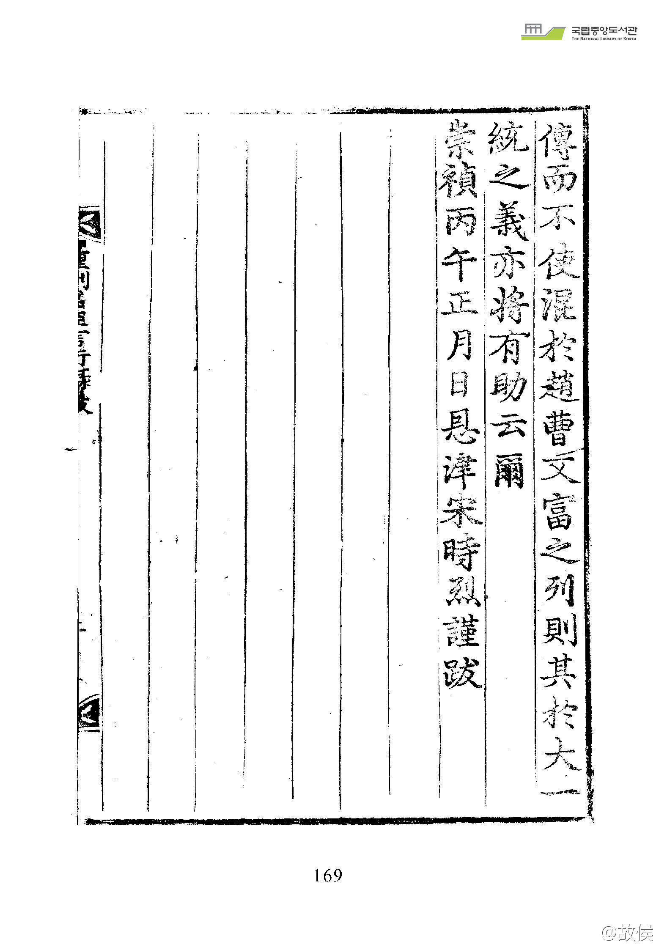 국립중앙도서관
THE NATIONAL LIBRARY OF KOREA
傳而不使混於趙曹文富之列則其於大一
統之義亦將有助云爾
崇禎丙午正月日恩津宋時烈謹跋
169
@故侯